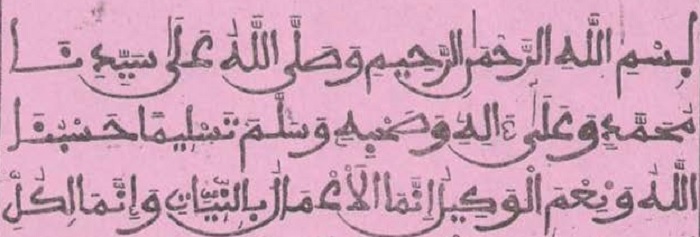 بِسْمِ اللَّهِ الرَّحْمَنِ الرَّحِيمِ وَصَلَّى اللَّهُ عَلَى سَيِّدِنَا
مُحَمَّدٍ وَعَلَى ءَالِهِ وَصَحْبِهِ وَسَلَّمَ تَسْلِيمًا حَسْبُنَا
اللَّهُ وَنِعْمَ الْوَكِيلُ إِنَّمَا الَاعْمَالُ بِالنِّيَّاتِ وَإِنَّمَا لِكُلِّ